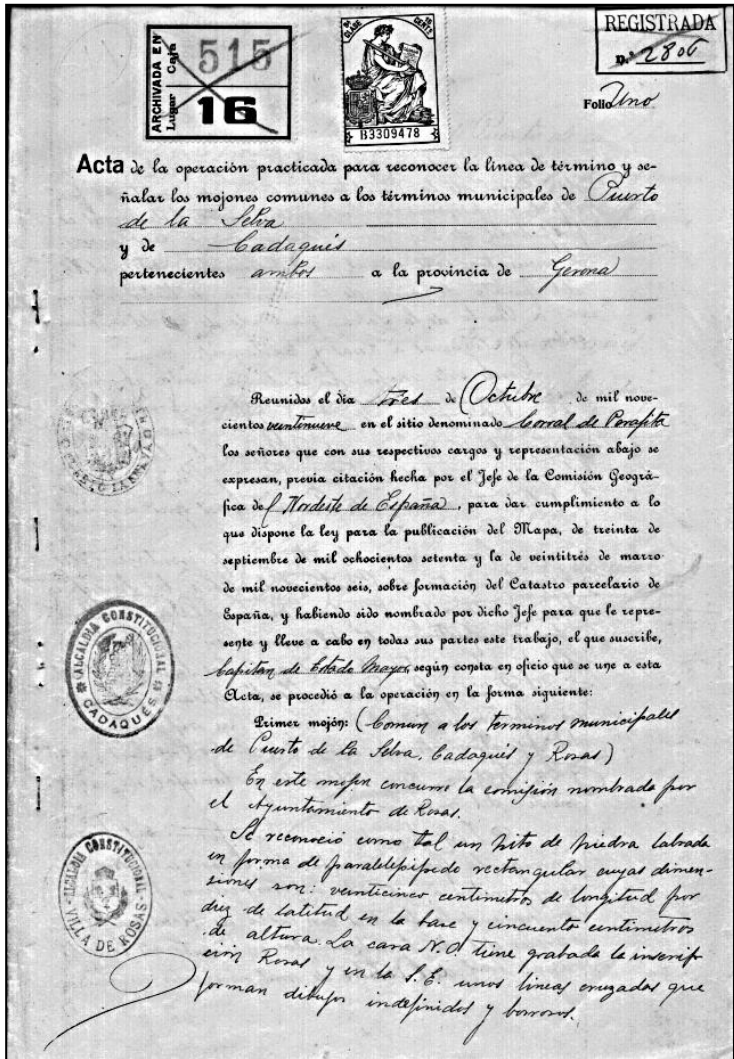 ARCHIVADA EN
Lugar Caja
515
16
8ª CLASE 15 CENTS
B3309478
REGISTRADA
n.º 2806
Folio Uno
Acta de la operación practicada para reconocer la línea de término y se-
ñalar los mojones comunes a los términos municipales de Puerto
de la Selva
y de Cadaqués
pertenecientes ambos a la provincia de Gerona
Reunidos el día tres de Octubre de mil nove-
cientos veintinueve en el sitio denominado Corral de Perafita
los señores que con sus respectivos cargos y representación abajo se
expresan, previa citación hecha por el Jefe de la Comisión Geográ-
fica del Nordeste de España, para dar cumplimiento a lo
que dispone la ley para la publicación del Mapa, de treinta de
septiembre de mil ochocientos setenta y la de veintitrés de marzo
de mil novecientos seis, sobre formación del Catastro parcelario de
España, y habiendo sido nombrado por dicho Jefe para que le repre-
sente y lleve a cabo en todas sus partes este trabajo, el que suscribe,
Capitan de Estado Mayor, según consta en oficio que se une a esta
Acta, se procedió a la operación en la forma siguiente:
Primer mojón: (Comun a los terminos municipales
de Puerto de la Selva, Cadaqués y Rosas)
En este mojon concurre la comisión nombrada por
el Ayuntamiento de Rosas.
Se reconoció como tal un hito de piedra labrada
en forma de paralelepipedo rectangular cuyas dimen-
siones son: venticinco centimetros de longitud por
diez de latitud en la base y cincuenta centimetros
de altura. La cara N.O. tiene grabada la inscrip
ción Rosas y en la S.E. unas lineas cruzadas que
forman dibujos indefinidos y borrosos.
ALCALDIA CONSTITUCIONAL
CADAQUÉS
ALCALDIA CONSTITUCIONAL
VILLA DE ROSAS